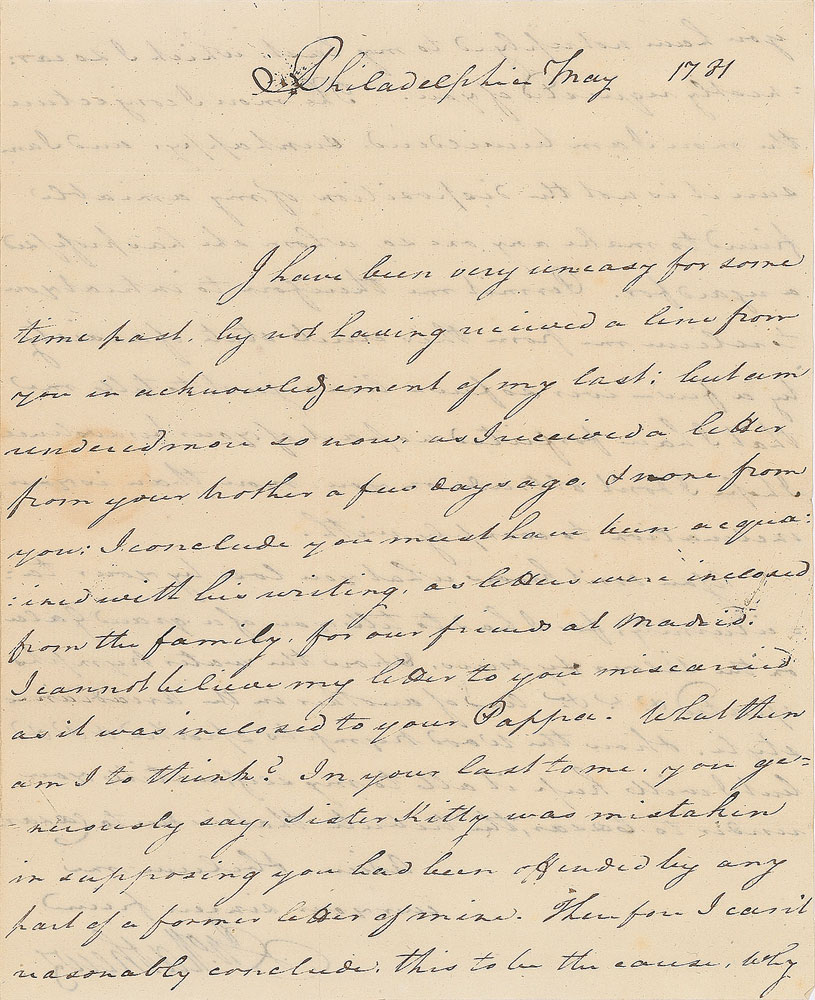 Philadelphia May 1781
I have been very uneasy for some
time past, by not having received a line from
you in acknowledgement of my last; but am
rendered more so now, as I received a letter
from your brother a few days ago, & none from
you: I conclude you must have been acqua:
:ined with his writing, as letters were inclosed
from the family, for our friends at Madrid.
I cannot believe my letter to you miscarried
as it was inclosed to your Pappa. What then
am I to think? In your last to me, you ge=
=nerously say, Sister Kitty was mistaken
in supposing you had been offended by any
part of a former letter of mine. Therefore I can't
reasonably conclude, this to be the cause, why